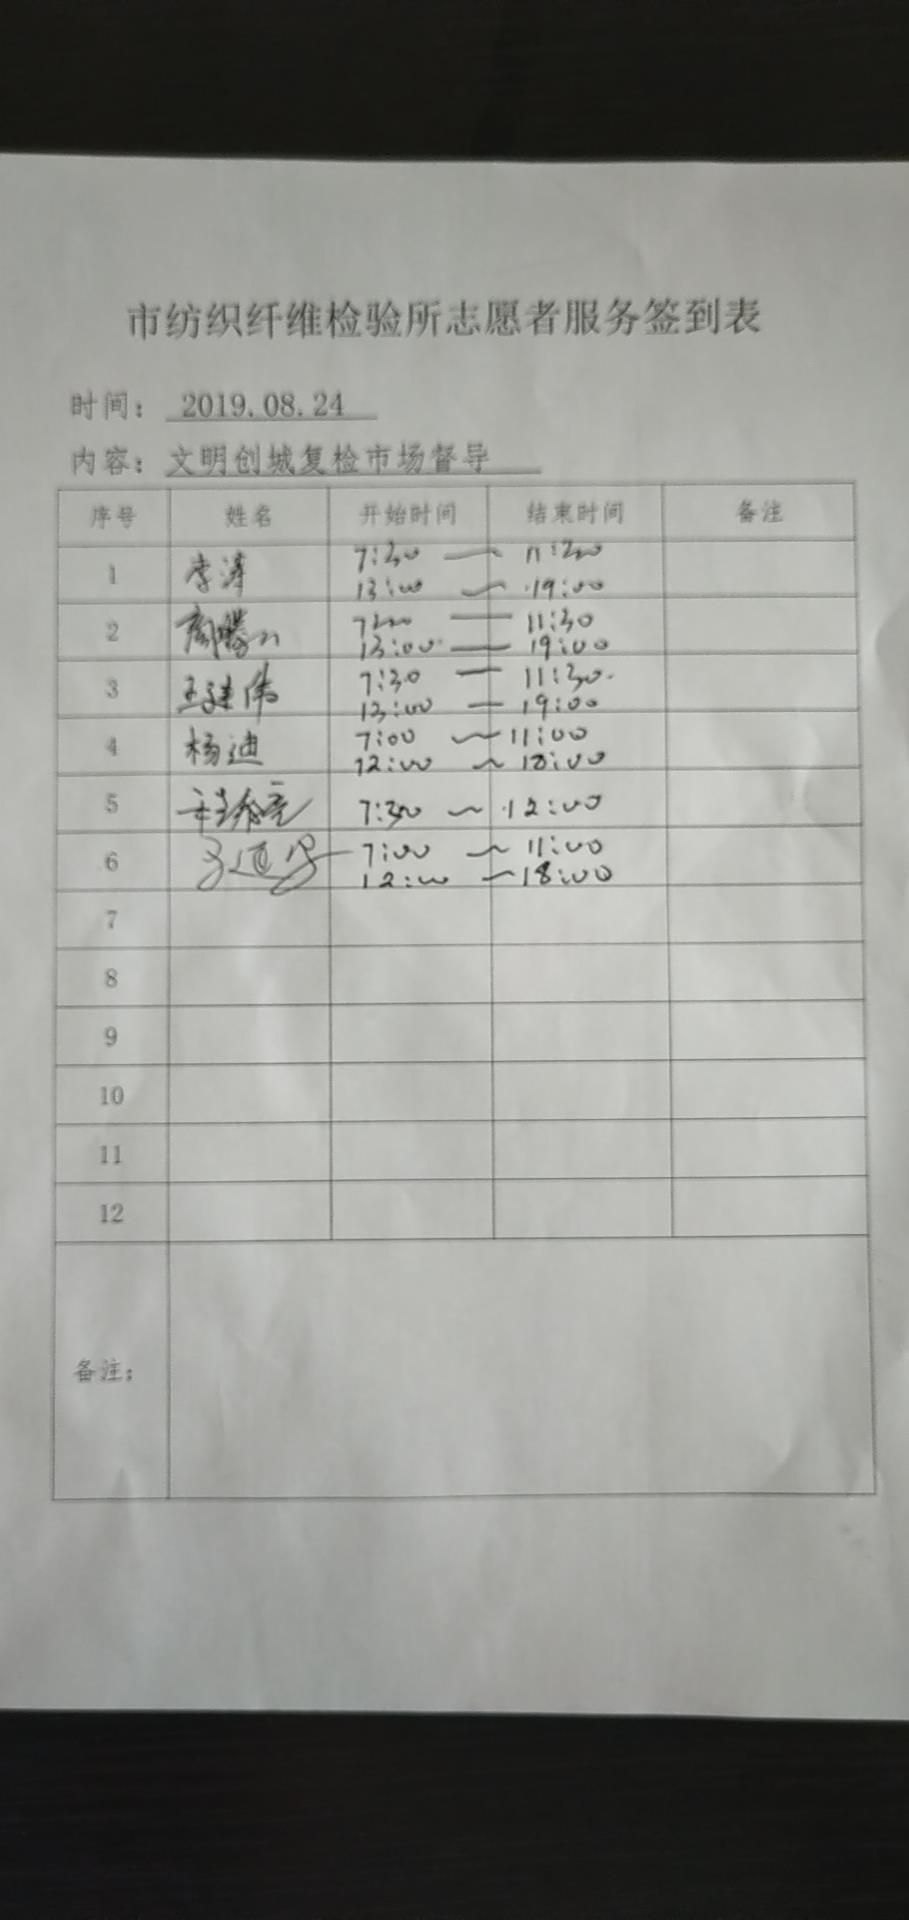 市纺织纤维检验所志愿者服务签到表
时间： 2019.08.24
内容：文明创城复检市场督导
序号 姓名 开始时间 结束时间 备注
1 李涛 7:30 — 11:30
13:00 ~ 19:00
2 7:30 — 11:30
13:00 — 19:00
3 王建伟 7:30 — 11:30
13:00 — 19:00
4 杨迪 7:00 ~ 11:00
12:00 ~ 18:00
5 7:30 ~ 12:00
6 7:00 ~ 11:00
12:00 ~ 18:00
7
8
9
10
11
12
备注：